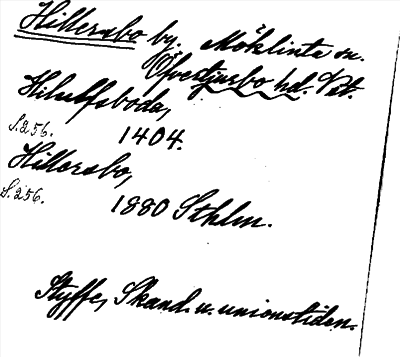 Hillersbo by. Möklinta sn.
Öfvertjurbo hd. Vst.
Hilulfsboda,
S. 256. 1404.
Hillersbo,
S. 256. 1880 Sthlm.
Styffe, Skand. u. unionstiden.